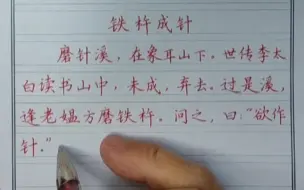 铁杵成针
磨针溪，在象耳山下。世传李太
白读书山中，未成，弃去。过是溪，
逢老媪方磨铁杵。问之，曰：“欲作
针。”